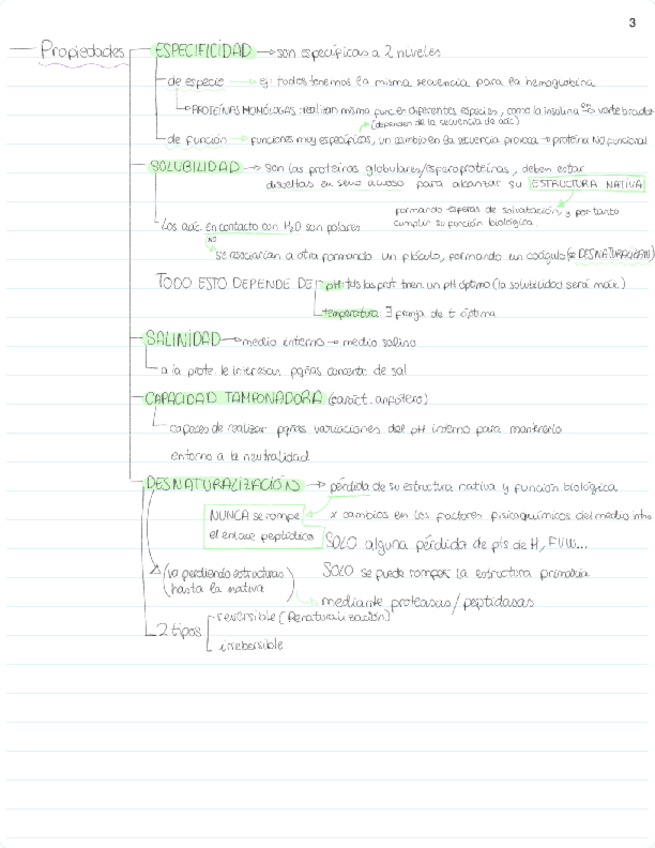 3
Propiedades
ESPECIFICIDAD → son específicas a 2 niveles
de especie → ej: todos tenemos la misma secuencia para la hemoglobina
PROTEÍNAS HOMÓLOGAS: realizan misma func en diferentes especies, como la insulina en vertebrados
(dependen de la secuencia de aác)
de función → funciones muy específicas, un cambio en la secuencia provoca → proteína NO funcional
SOLUBILIDAD → son las proteínas globulares/esferoproteínas, deben estar
disueltas en seno acuoso para alcanzar su ESTRUCTURA NATIVA
formando esferas de solvatación y por tanto
cumplir su función biológica.
Los aác. en contacto con H2O son polares
NO
se asociarían a otra formando un flóculo, formando un coágulo (= DESNATURALIZACIÓN)
TODO ESTO DEPENDE DE pH: tds las prot tnen un pH óptimo (la solubilidad será máx)
temperatura: ∃ franja de t óptima
SALINIDAD → medio interno → medio salino
a la prote. le interesan pqñas concentr. de sal
CAPACIDAD TAMPONADORA (caráct. anfótero)
capaces de realizar pqñas variaciones del pH interno para mantenerlo
entorno a la neutralidad
DESNATURALIZACIÓN → pérdida de su estructura nativa y función biológica
NUNCA se rompe
el enlace peptídico
x cambios en los factores fisicoquímicos del medio intro
SOLO alguna pérdida de pts de H, FVW...
(va perdiendo estructuras
hasta la nativa)
SOLO se puede romper la estructura primaria
mediante proteasas/peptidasas
2 tipos
reversible (Renaturalización)
irrebersible